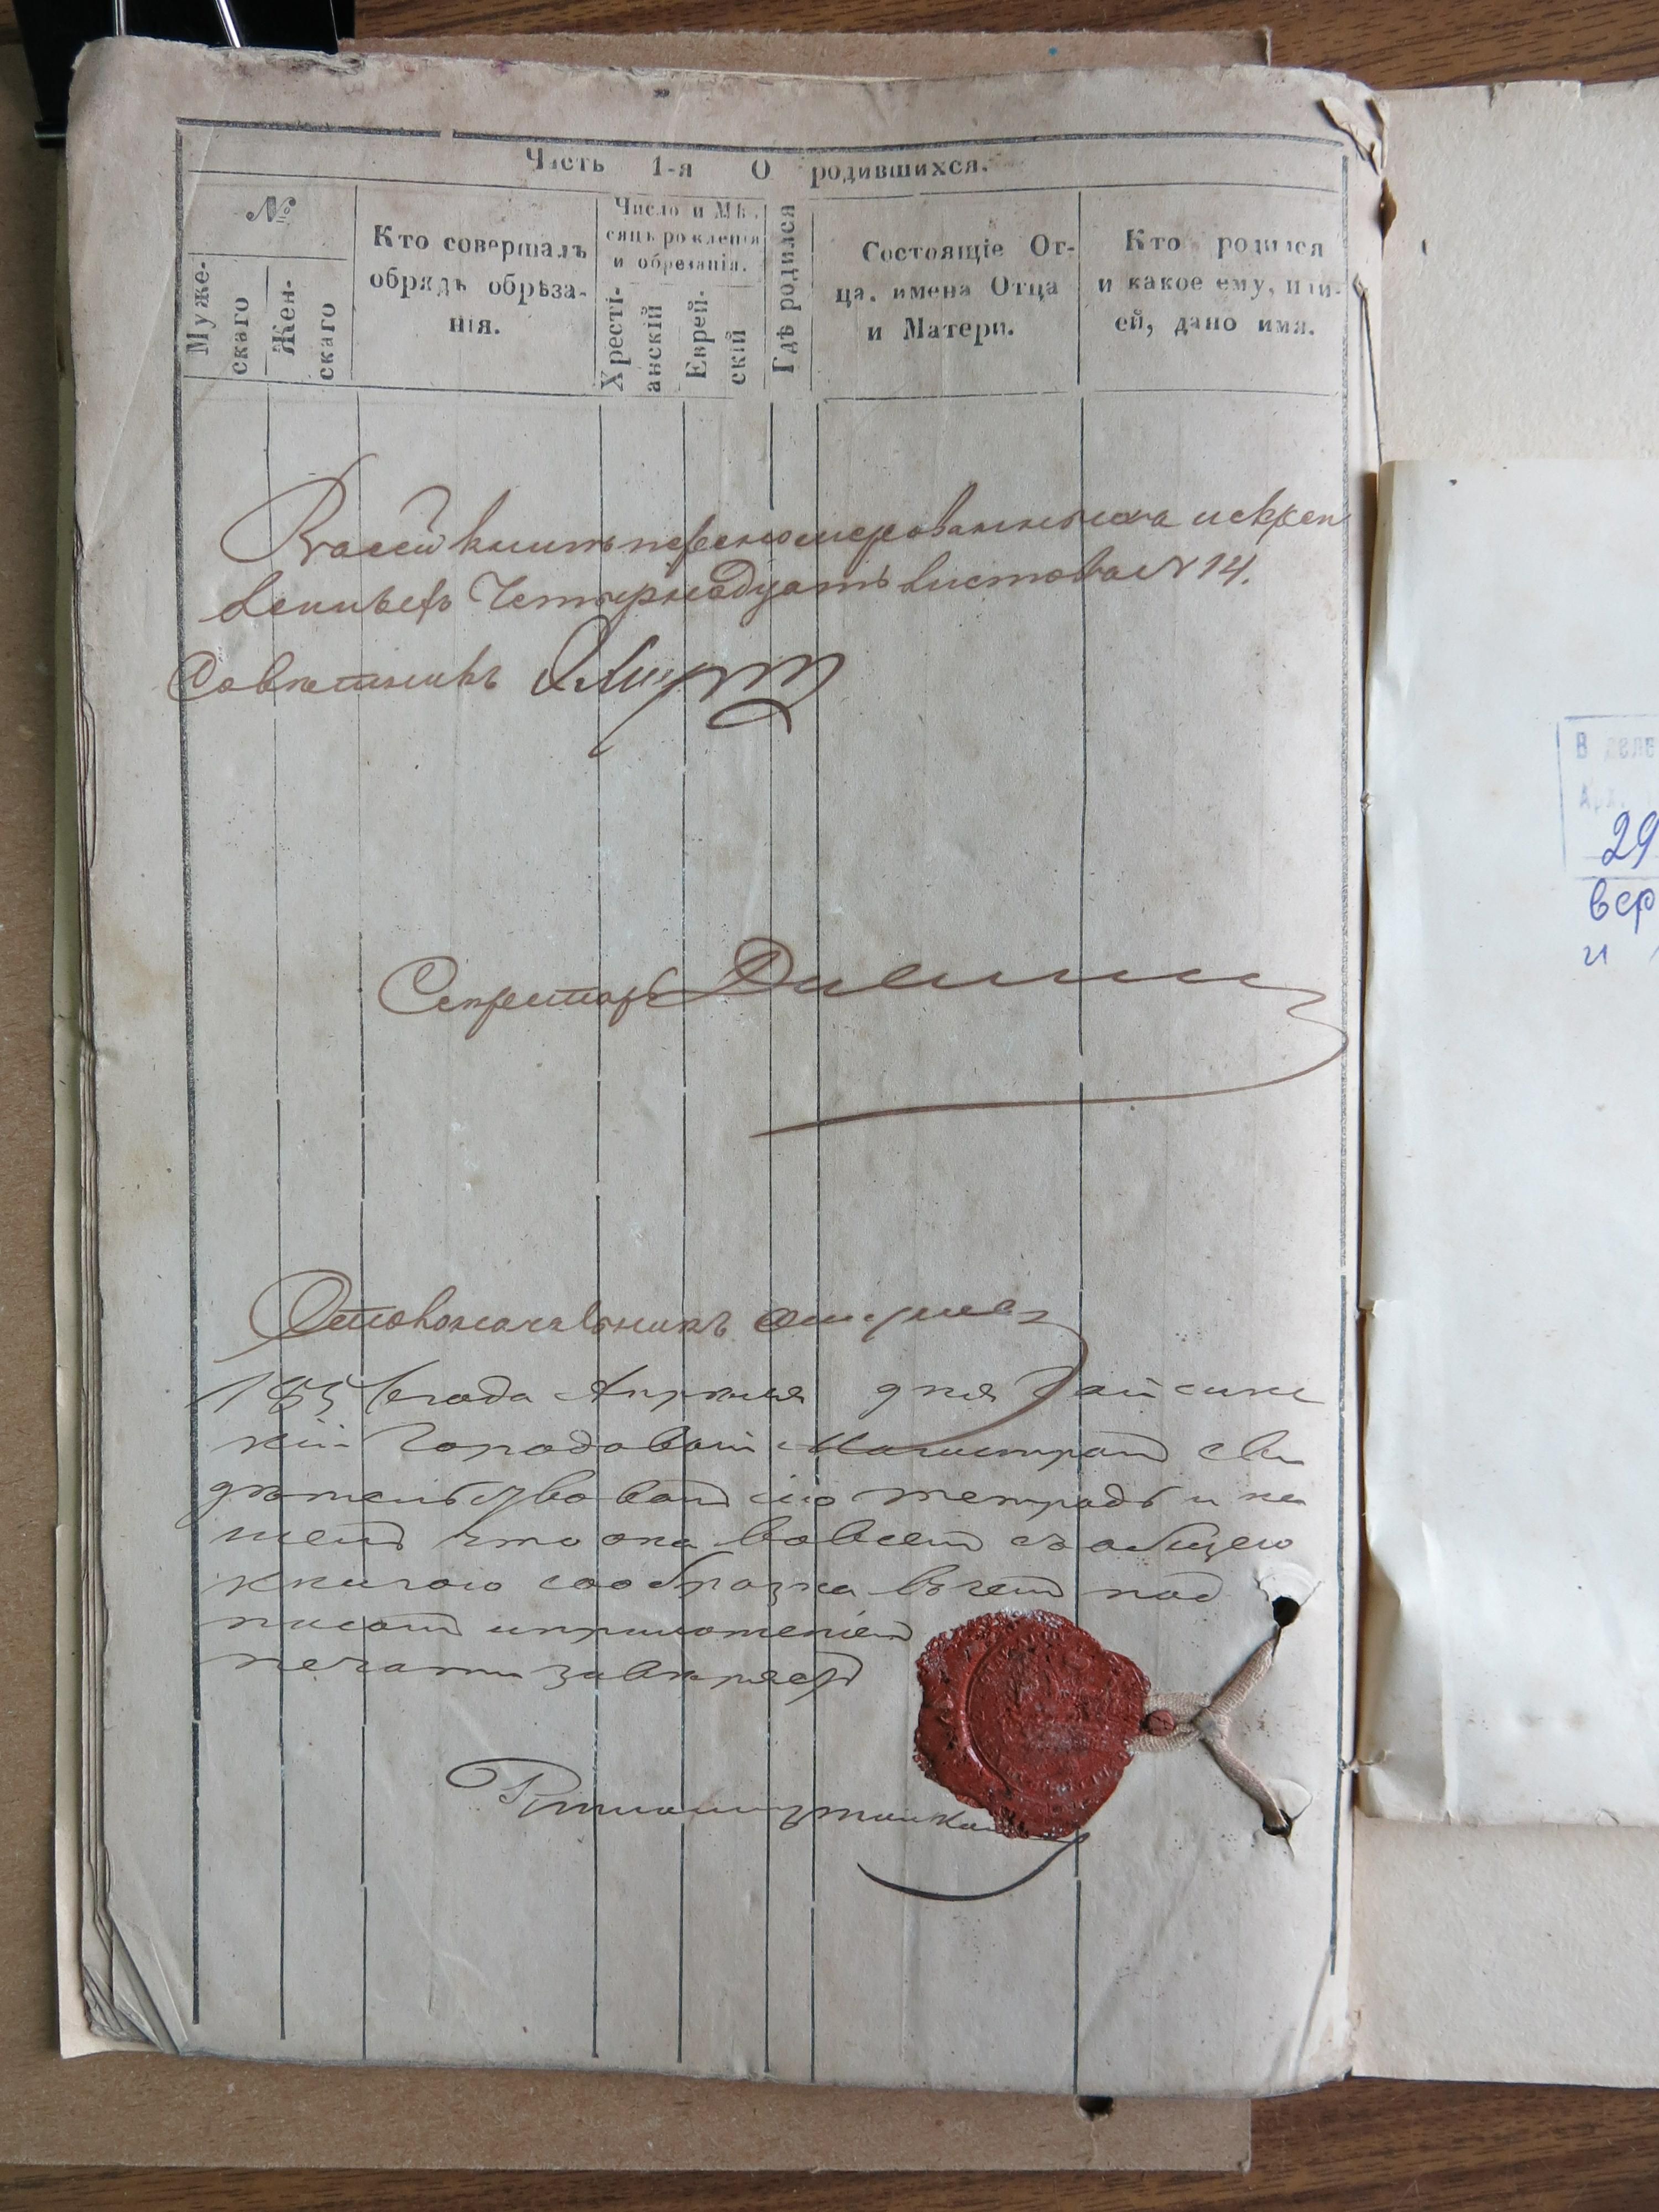 Часть 1-я О родившихся.
№
Мужескаго
Женскаго
Кто совершалъ
обрядъ обрѣза-
нія.
Число и Мѣ-
сяцъ рожденія
и обрезанія.
Хресті-
анскій
Еврей-
скій
Гдѣ родился
Состоящіе От-
ца, имена Отца
и Матери.
Кто родился
и какое ему, или
ей, дано имя.
В сей книгѣ перенумерованныхъ и скреп
ленныхъ Четырнадцать листовъ № 14.
Совѣтникъ
Секретарь
Столоначальникъ
185 года Апрѣля дня Гайсинс
кій Городовой Магистратъ сви
дѣтельствовалъ сію тетрадь и на
шелъ что она во всемъ съ общею
книгою сообразна въ чемъ под
писомъ и приложеніемъ
печати завѣряетъ
В деле
Арх.
29
вер
и